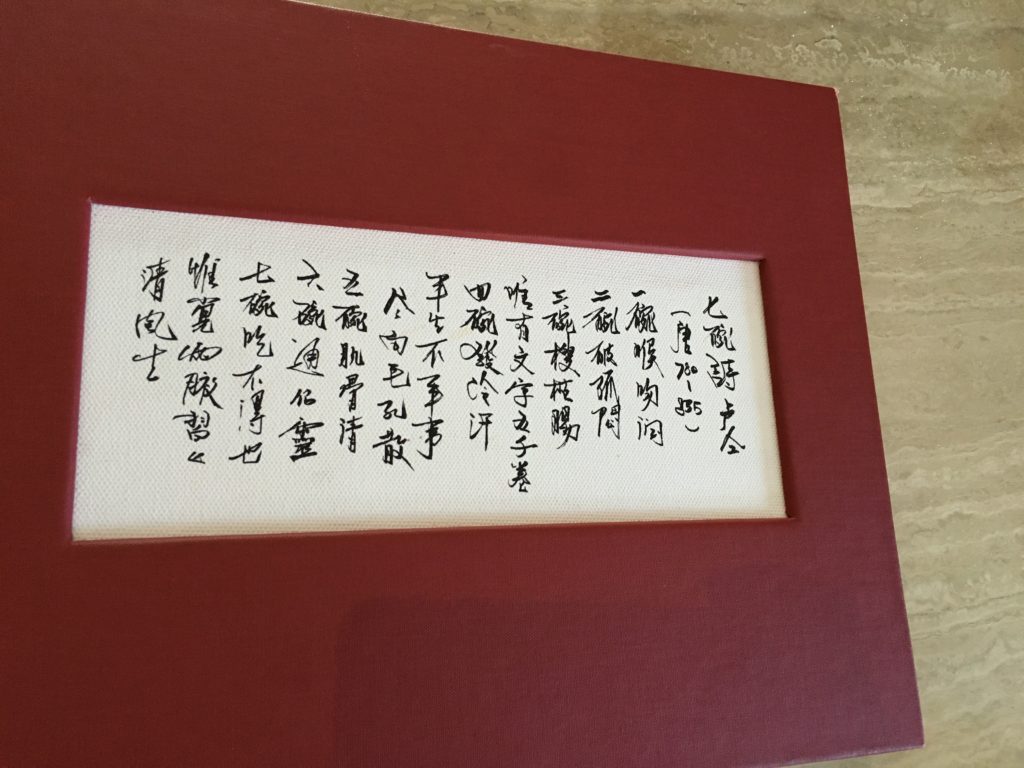 七碗詩 卢仝
（唐790-835）
一碗喉吻润
二碗破孤闷
三碗搜枯腸
唯有文字五千卷
四碗發冷汗
平生不平事
尽向毛孔散
五碗肌骨清
六碗通仙靈
七碗吃不得也
惟覚两腋習〻
清风生